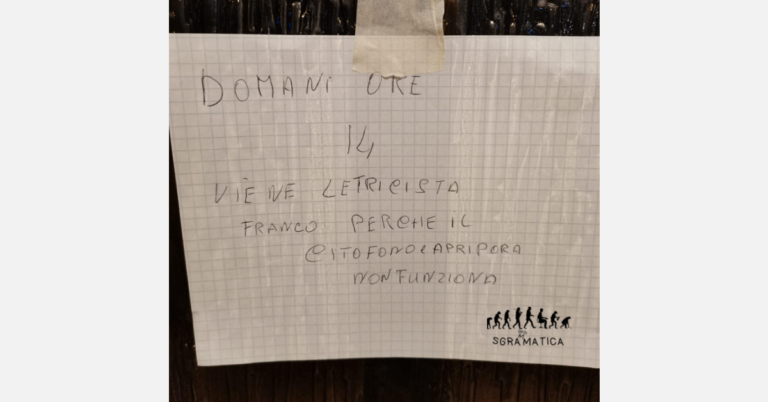 DOMANI ORE
14
VIENE LETRICISTA
FRANCO PERCHE IL
CITOFONO E APRIPORA
NON FUNZIONA
SGRAMATICA